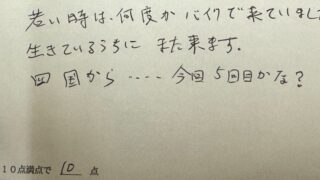 若い時は、何度かバイクで来ていまし
生きているうちに また来ます。
四国から ‥‥ 今回5回目かな?
10点満点で 10 点